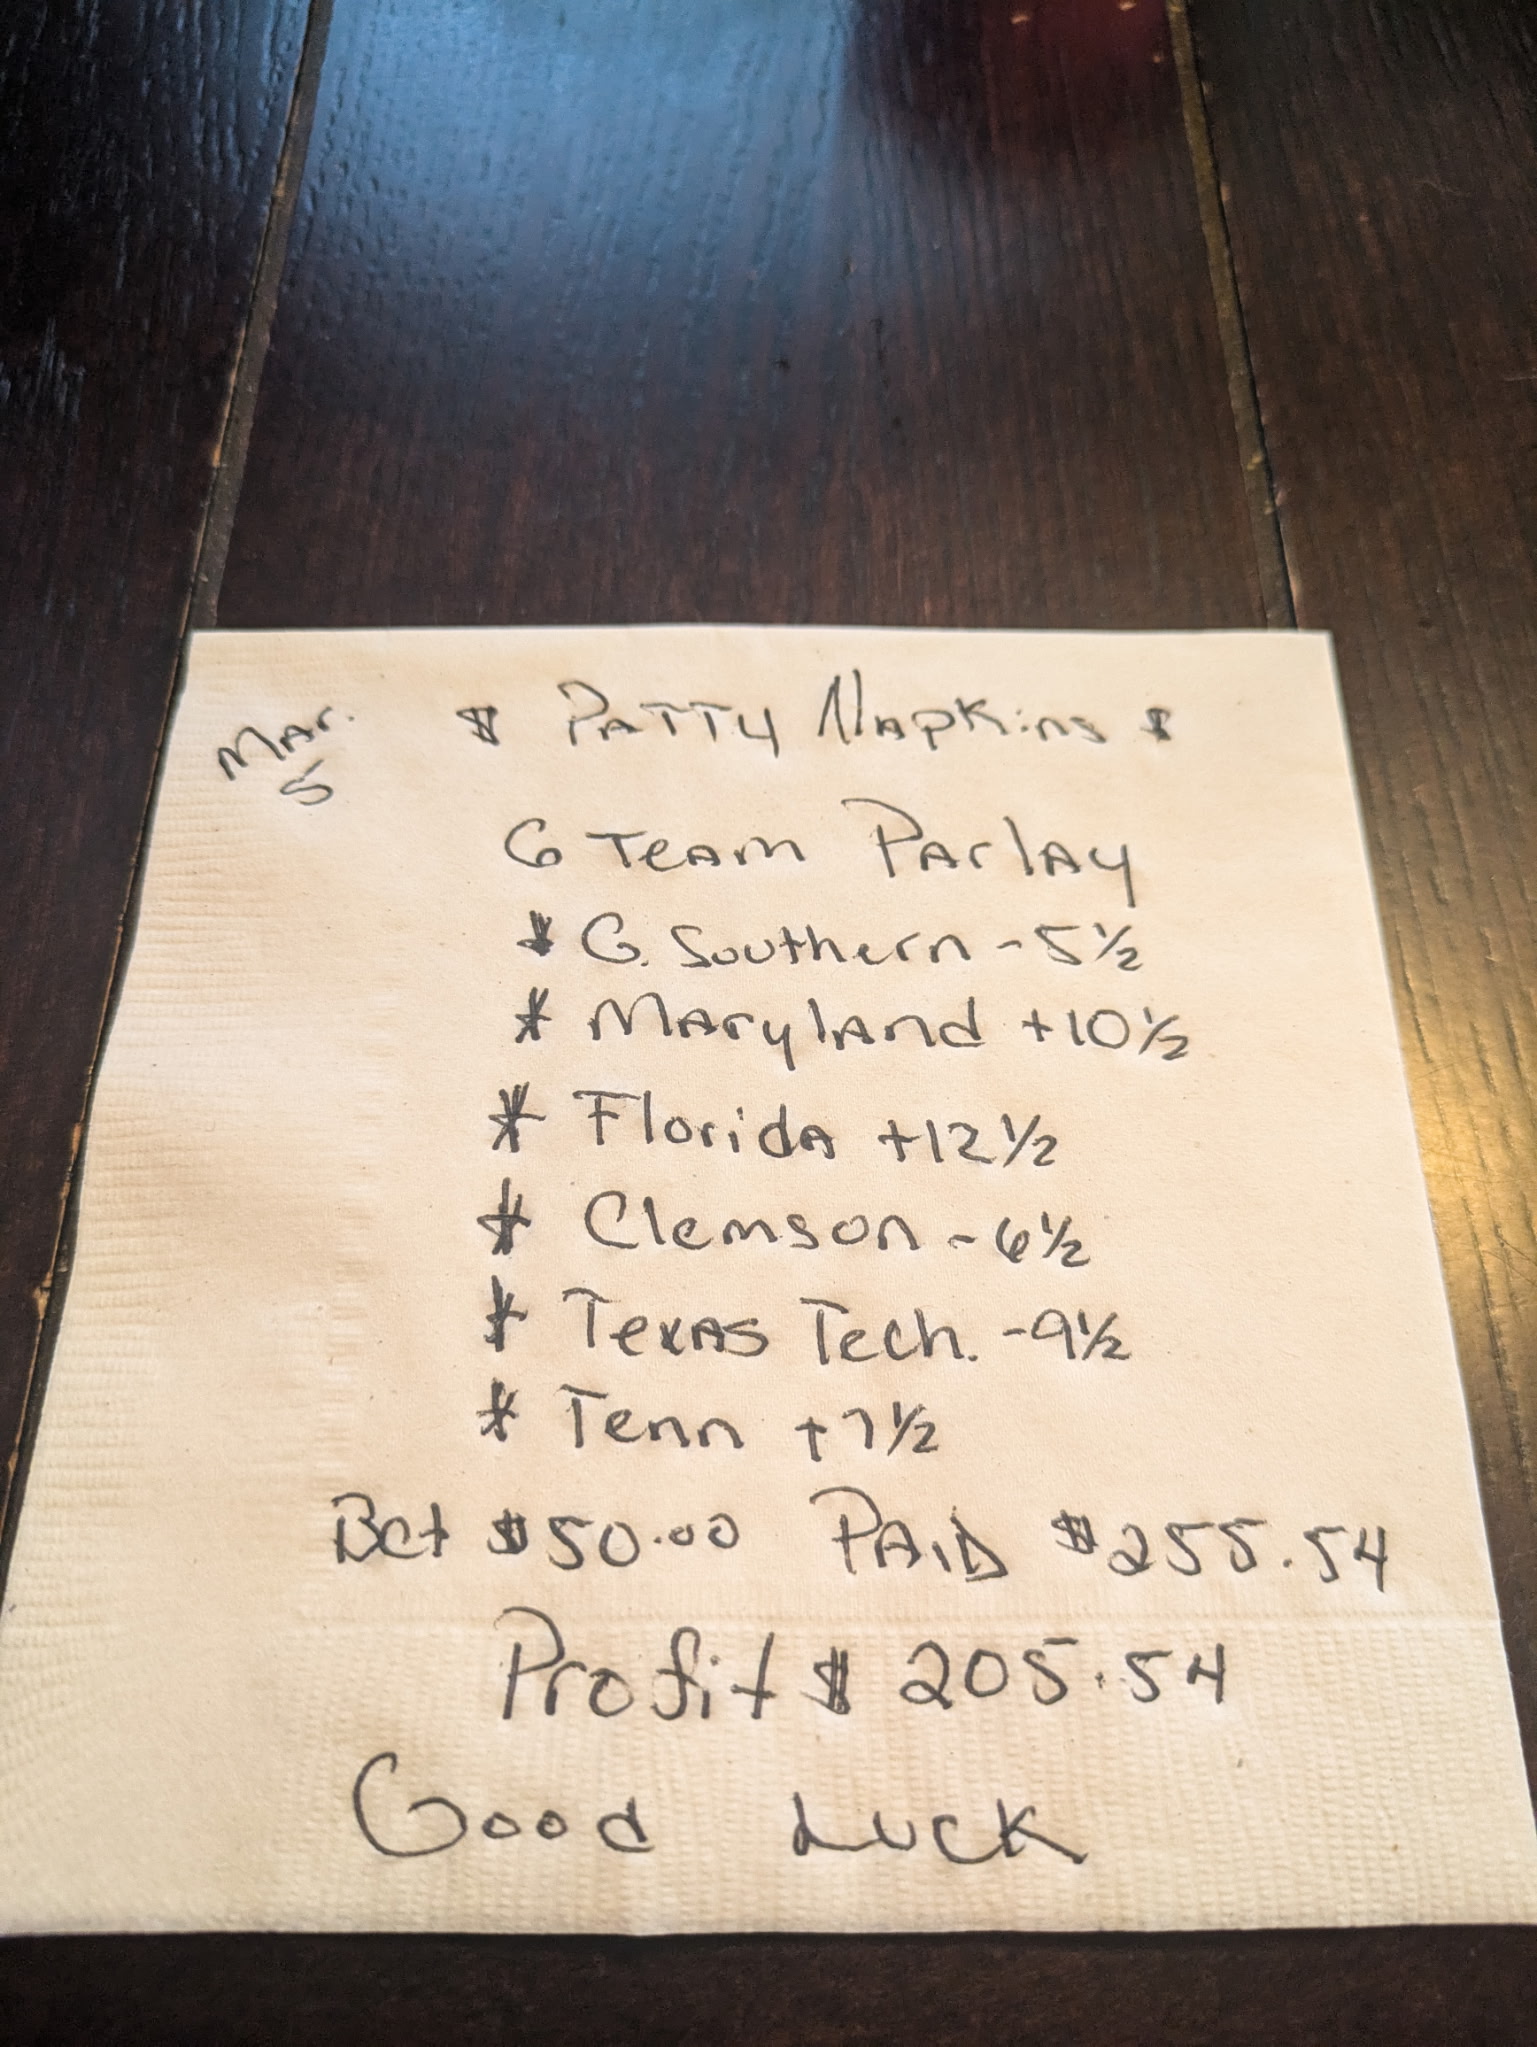 Mar. 5
$ Patty Napkins $
6 Team Parlay
* G. Southern -5 1/2
* Maryland +10 1/2
* Florida +12 1/2
* Clemson -6 1/2
* Texas Tech. -9 1/2
* Tenn +7 1/2
Bet $50.00 PAID $255.54
Profit $ 205.54
Good Luck